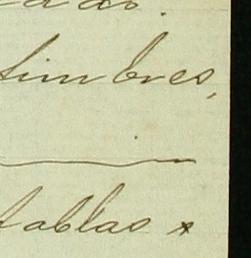 timbres,
tablas x